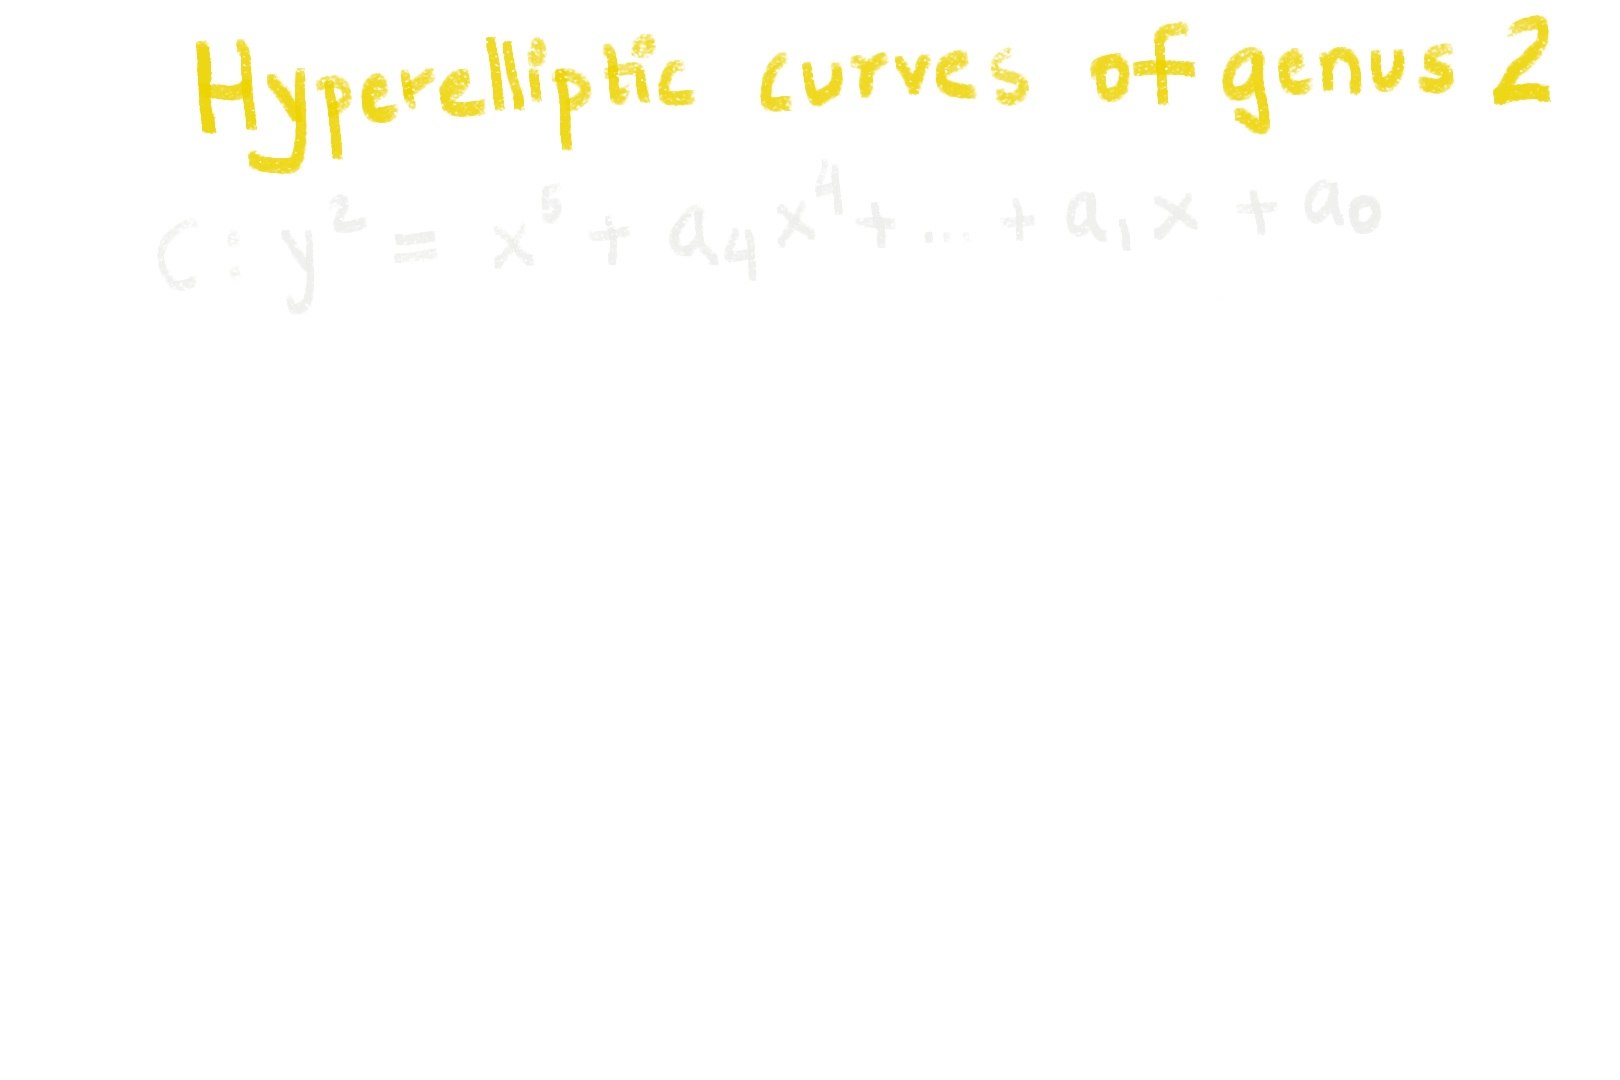 Hyperelliptic curves of genus 2
C: y² = x⁵ + a₄x⁴ + ... + a₁x + a₀